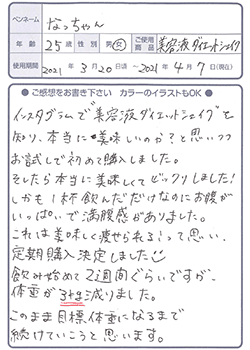 ペンネーム なっちゃん
年齢 25歳 性別 男・女 ご使用商品 美容液ダイエットシェイク
使用期間 2021年3月20日頃〜2021年4月7日(現在)
●ご感想をお書き下さい カラーのイラストもOK●
インスタグラムで"美容液ダイエットシェイク"を
知り、本当に美味しいのか?と思いつつ
お試しで初めて購入しました。
そしたら本当に美味しくてビックリしました!
しかも1杯飲んだだけなのにお腹が
いっぱいで満腹感がありました。
これは美味しく痩せられる!って思い、
定期購入決定しました
飲み始めて2週間ぐらいですが、
体重が3kg減りました。
このまま目標体重になるまで
続けていこうと思います。